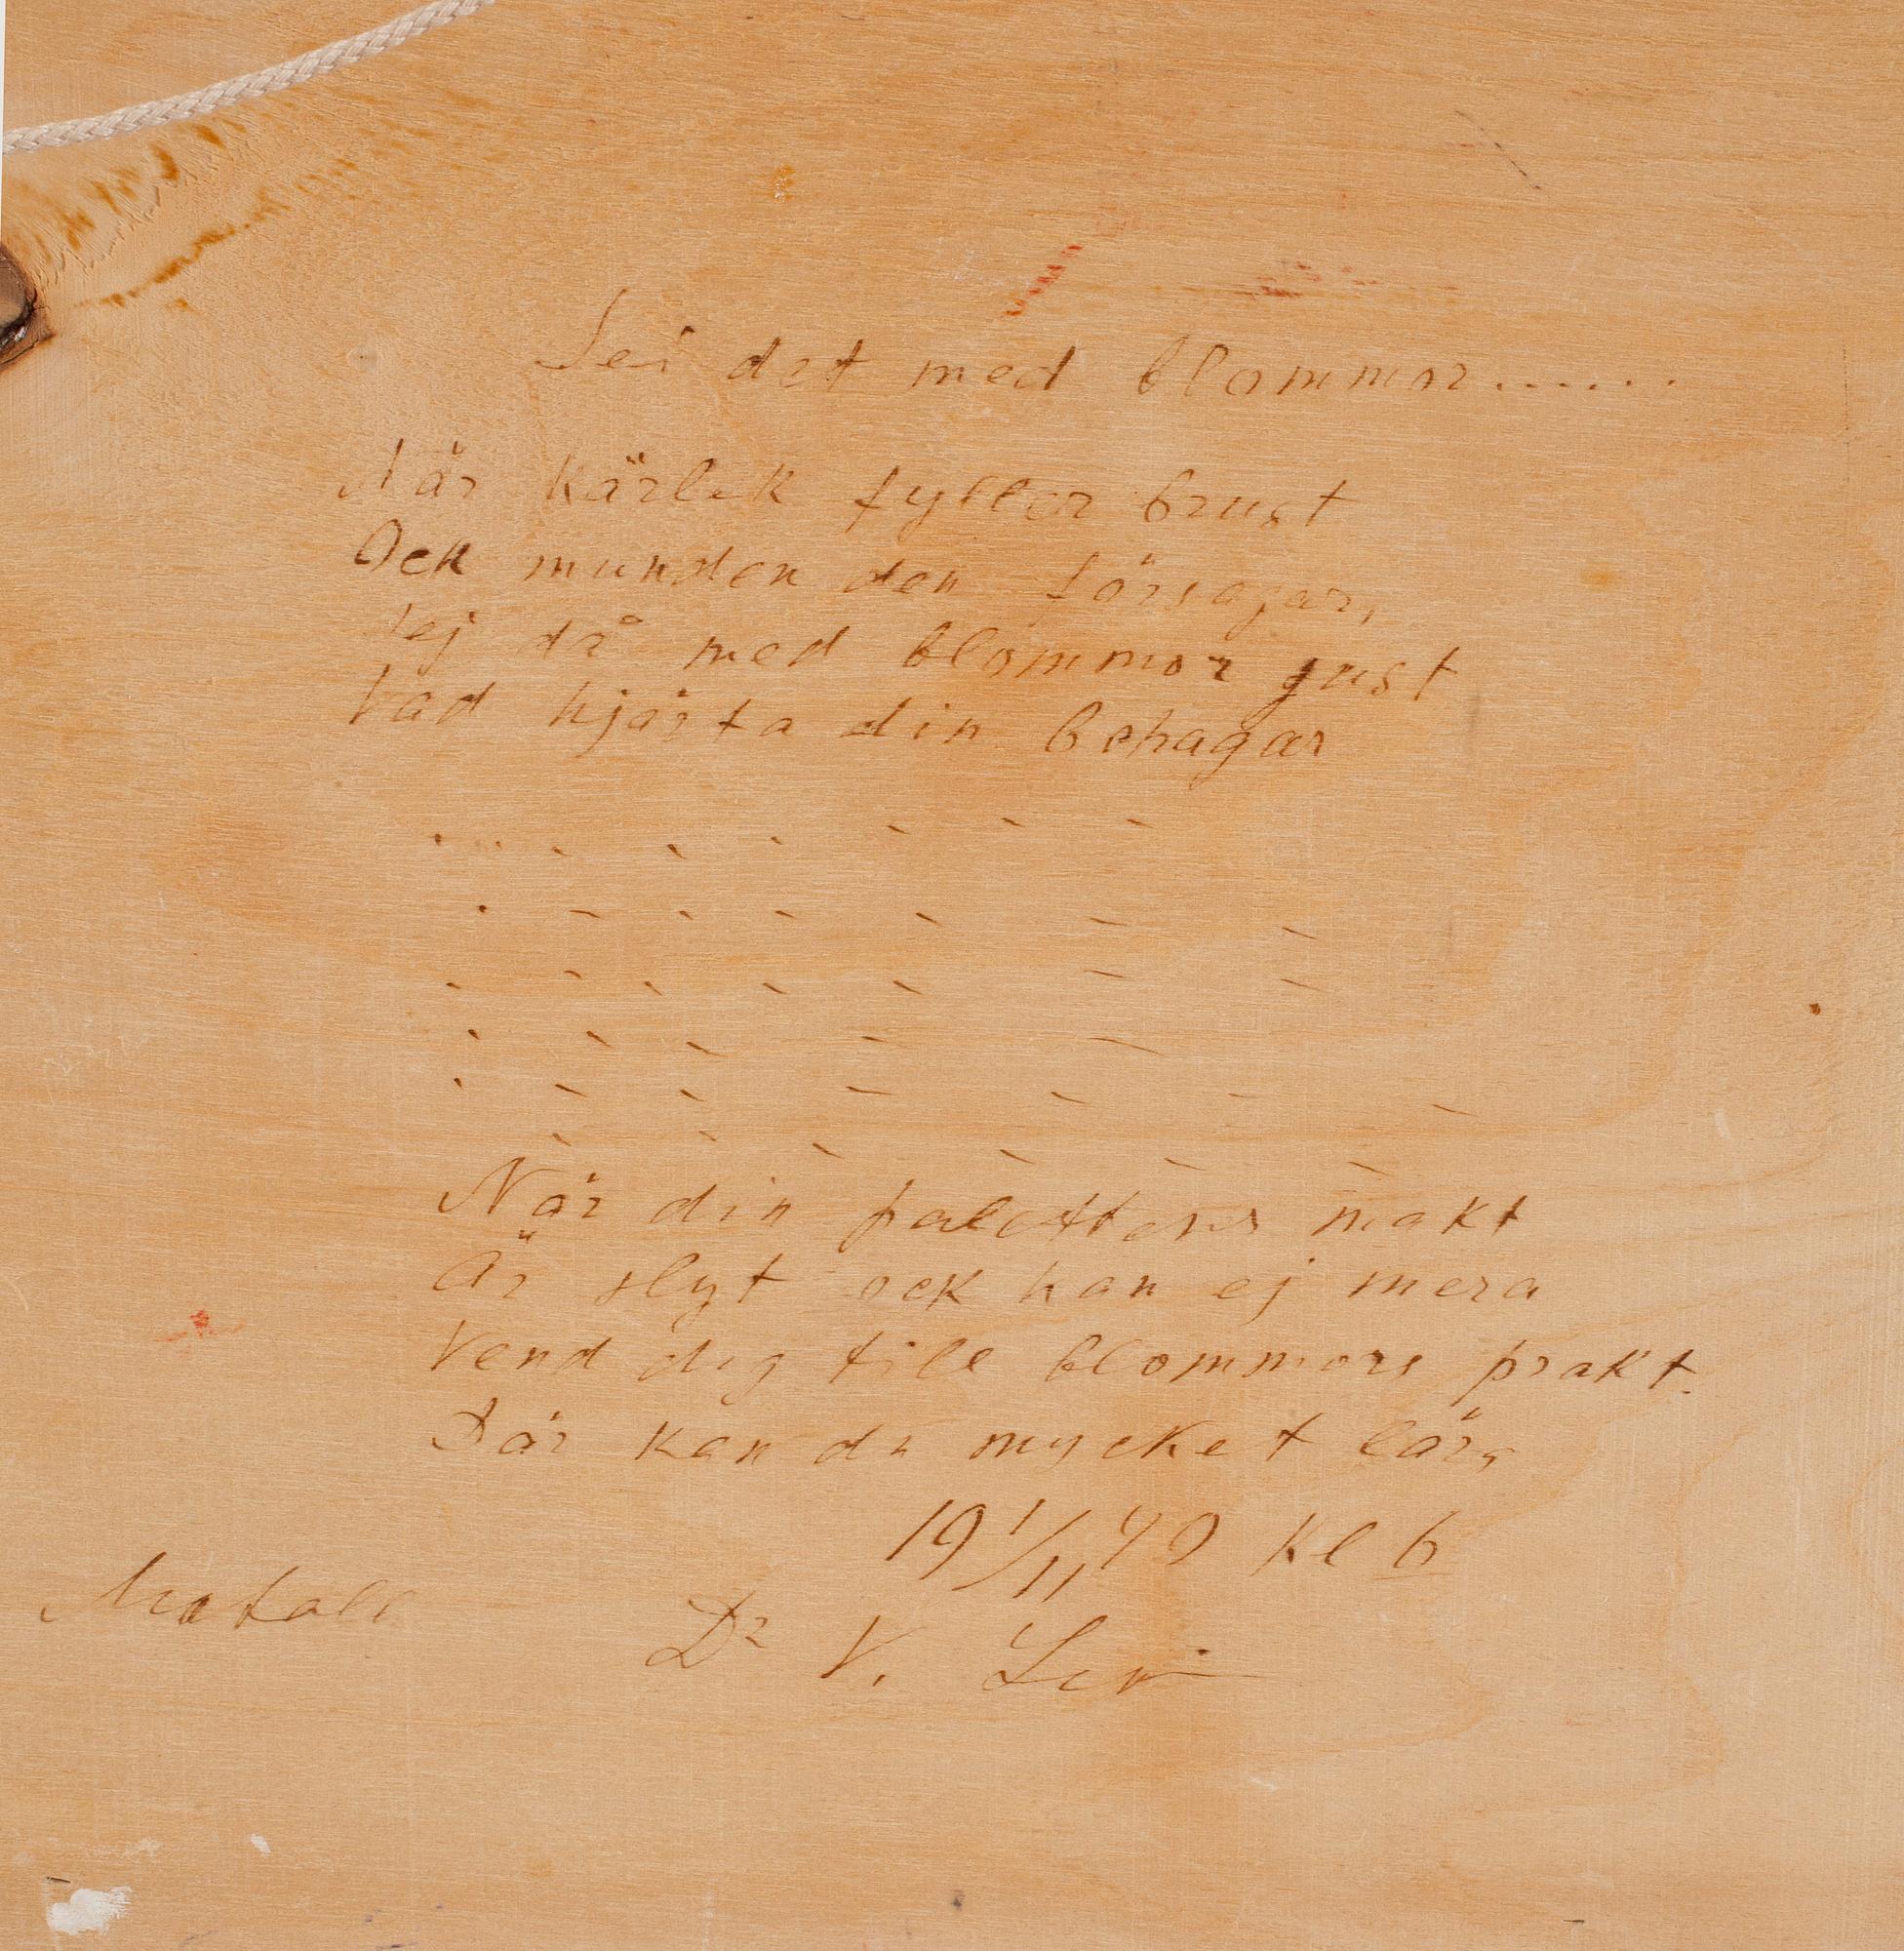 Sei det med blommor......
När kärlek fyller brust
Ock munden den försagar,
Sej då med blommor just
Vad hjärta din behagar
När din palettens makt
Är slyt ock kan ej mera
Vend dig till blommors prakt.
Där kan du mycket lära
19 1/11 40 kl 6
Dr V.